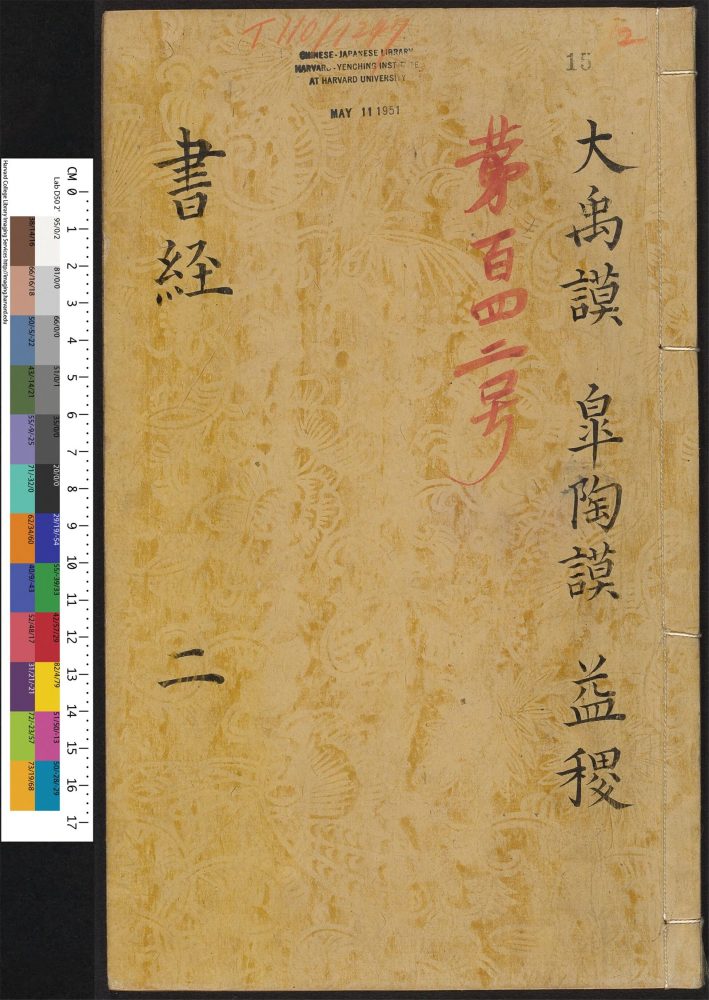 T 110/1247
CHINESE-JAPANESE LIBRARY
HARVARD-YENCHING INSTITUTE
AT HARVARD UNIVERSITY
MAY 11 1951
15
2
大禹謨 皐陶謨 益稷
第百四二号
書経 二
CM 0 1 2 3 4 5 6 7 8 9 10 11 12 13 14 15 16 17
Harvard College Library Imaging Services http://imaging.harvard.edu
Lab D50 2°
95/0/2
81/0/0
66/0/0
51/0/1
35/0/0
20/0/0
29/19/-54
55/-39/33
42/57/29
82/4/79
51/50/-13
50/-28/-29
38/14/16
66/16/18
50/-5/-22
43/-14/21
55/9/-25
71/-32/0
62/34/60
40/9/-43
52/48/17
31/21/-21
72/-23/57
73/19/68